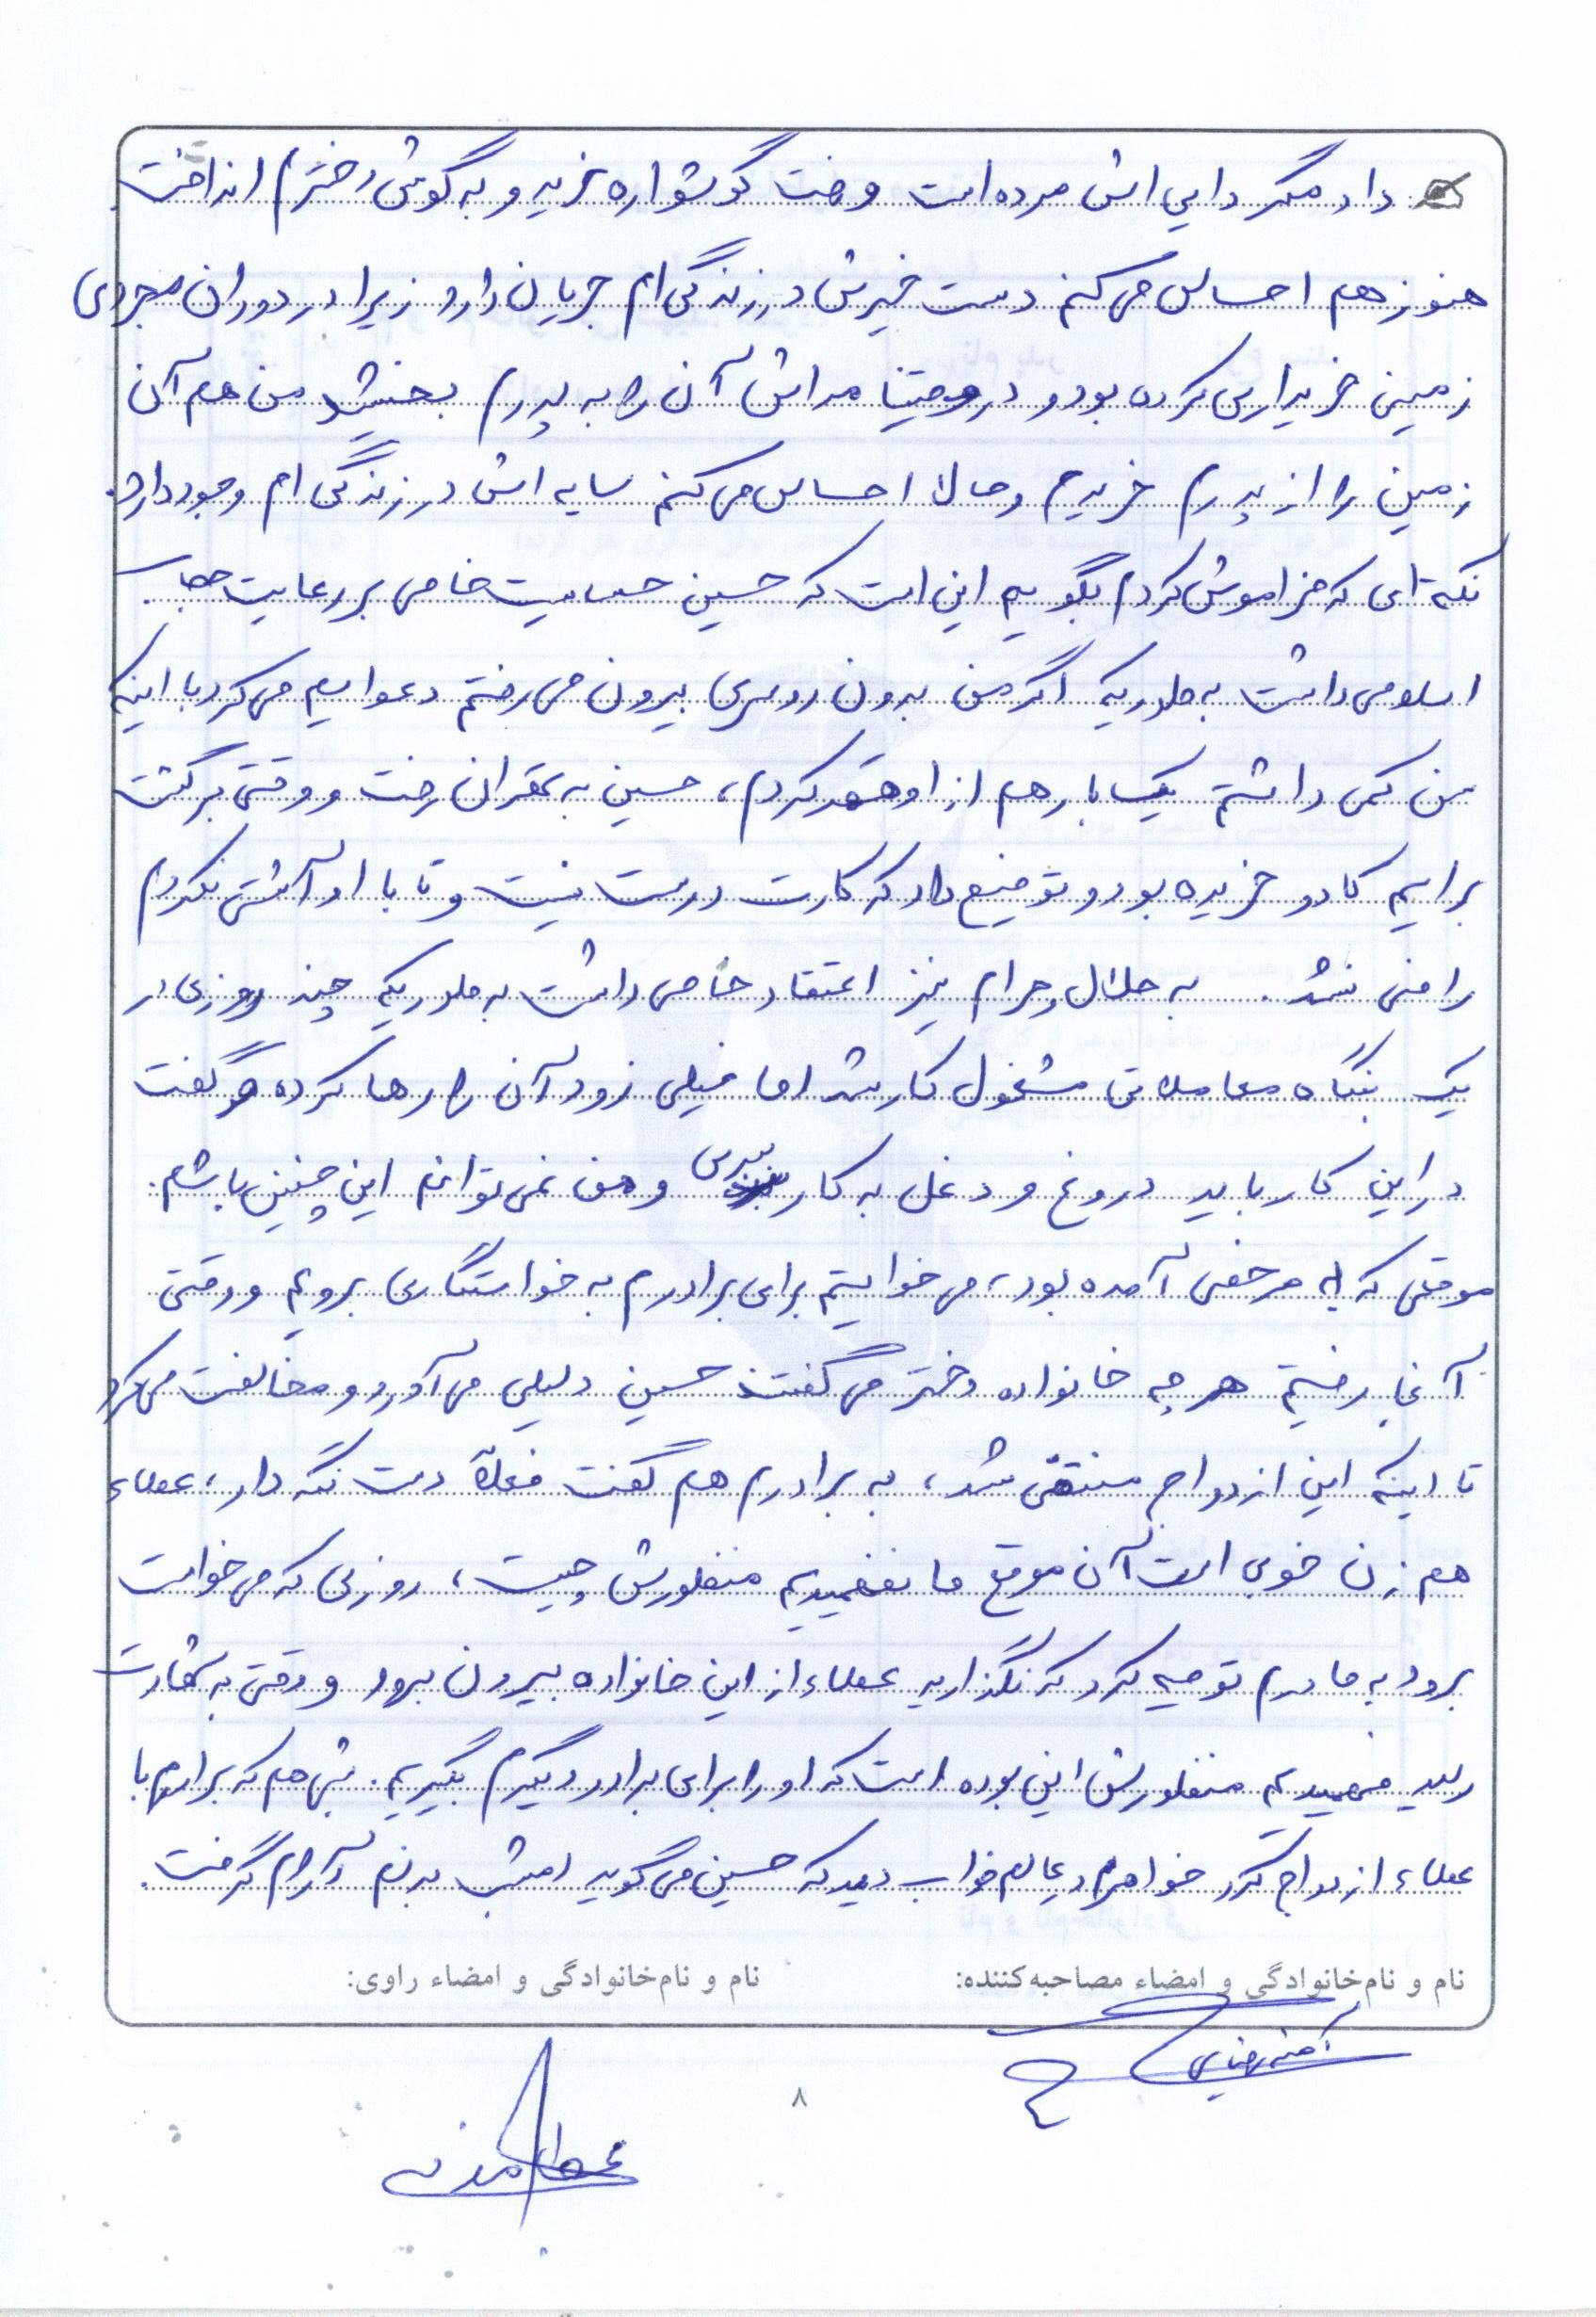 داد مگر دایی اش مرده است و رفت گوشواره خرید و به گوش دخترم انداخت
هنوز هم احساس می کنم دست خیرش در زندگی ام جریان دارد زیرا در دوران مجردی
زمینی خریداری کرده بود و در وصیتنامه اش آن را به پدرم بخشید من هم آن
زمین را از پدرم خریدم و حالا احساس می کنم سایه اش در زندگی ام وجود دارد.
نکته ای که فراموش کردم بگویم این است که حسین حساسیت خاصی بر رعایت حجاب
اسلامی داشت به طوریکه اگر من بدون روسری بیرون می رفتم دعوایم می کرد با اینکه
من کمی داشتم یک بار هم از او قهر کردم، حسین به تهران رفت و وقتی برگشت
برایم کادو خریده بود و توضیح داد که کارت درست نیست و تا با او آشتی نکردم
راضی نشد. به حلال و حرام نیز اعتقاد خاصی داشت به طوریکه چند روزی در
یک بنگاه معاملاتی مشغول کار شد اما خیلی زود آن را رها کرده و گفت
در این کار باید دروغ و دغل به کار ببری و من نمی توانم این چنین باشم.
موقعی که به مرخصی آمده بود، می خواستیم برای برادرم به خواستگاری برویم و وقتی
آنجا رفتیم هر چه خانواده دختر می گفتند حسین دلیلی می آورد و مخالفت می کرد
تا اینکه این ازدواج منتفی شد، به برادرم هم گفت فعلاً دست نگه دار، عطاء
هم زن خوبی است آن موقع ما نفهمیدیم منظورش چیست، روزی که می خواست
برود به مادرم توصیه کرد که نگذارید عطاء از این خانواده بیرون برود و وقتی به شهادت
رسید فهمیدیم منظورش این بوده است که او را برای برادر دیگرم بگیریم. شبی هم که برادرم با
عطاء ازدواج کرد خواهرم در عالم خواب دید که حسین می گوید امشب بدنم آرام گرفت.
نام و نام خانوادگی و امضاء مصاحبه کننده: نام و نام خانوادگی و امضاء راوی:
۸